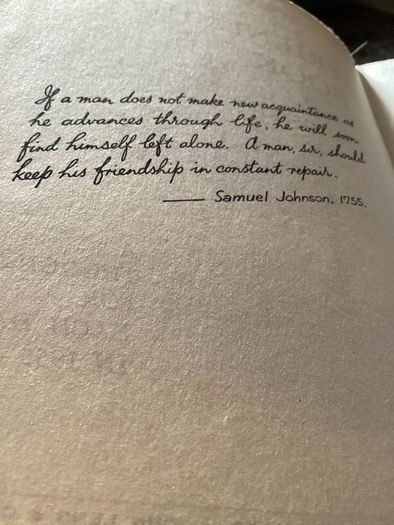 If a man does not make new acquaintance as
he advances through life, he will soon
find himself left alone. A man, sir, should
keep his friendship in constant repair.
—— Samuel Johnson, 1755.